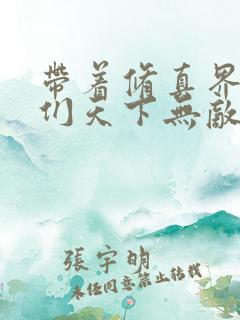 帶着脩真界
们天下無敵
張宇明
未经同意禁止转载